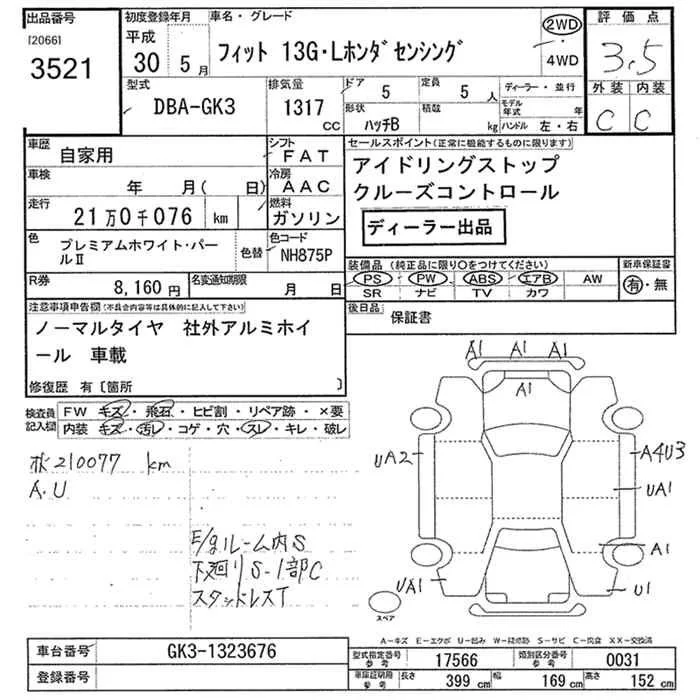 出品番号
[2066]
3521
初度登録年月
平成
30 5月
車名・グレード
フィット 13G・Lホンダセンシング
2WD
4WD
評価点
3.5
外装 内装
C C
型式
DBA-GK3
排気量
1317 CC
ドア 5
定員 5 人
形状 ハッチB
積載 kg
ディーラー・並行
モデル年式 年
ハンドル 左・右
車歴 自家用
シフト FAT
車検 年 月( 日)
冷房 AAC
走行 21万0千076 km
燃料 ガソリン
色 プレミアムホワイト・パールⅡ
色替
色コード NH875P
R券 8,160円
名変通知期限 月 日
セールスポイント(正常に機能するものに限ります)
アイドリングストップ
クルーズコントロール
ディーラー出品
装備品(純正品に限り○をつけてください)
PS PW ABS エアB AW
SR ナビ TV カワ
新車保証書
有・無
後日品 保証書
注意事項申告欄(不具合内容等は具体的に記入して下さい)
ノーマルタイヤ 社外アルミホイ
ール 車載
修復歴 有〔箇所 〕
検査員記入欄
FW キズ・飛石・ヒビ割・リペア跡・×要
内装 キズ・汚レ・コゲ・穴・スレ・キレ・破レ
210077 km
A.U
E/gルーム内S
下廻りS-1部C
スタッドレスT
A1 A1 A1
A1
UA2
A4U3
UA1
A1
UA1
U1
スペア
A-キズ E-エクボ U-凹み W-補修跡 S-サビ C-腐食 XX-交換済
車台番号 GK3-1323676
登録番号
型式指定番号 参考 17566
類別区分番号 参考 0031
車庫証明用 参考
長さ 399 cm
幅 169 cm
高さ 152 cm